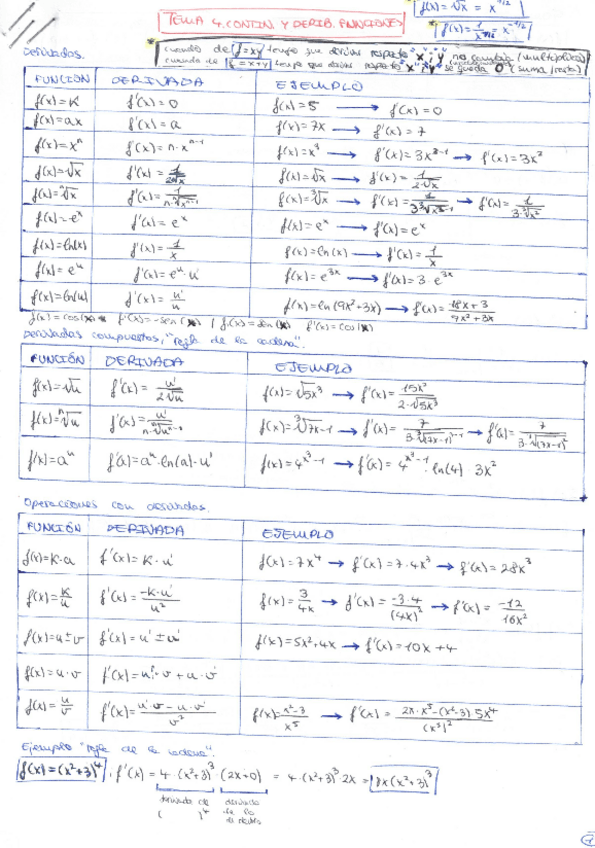 f(x) = √x = x^1/2
TEMA 4. CONTIN. Y DERIB. FUNCIONES
f(x) = 1/x^1/2 = x^-1/2
cuando de f=x·y tengo que derivar respecto x i y no cambia (multiplica)
cuando de f=x+y tengo que derivar respecto x i y se queda 0 (suma/resta)
Derivadas.
FUNCIÓN DERIVADA EJEMPLO
f(x)=K f'(x)=0 f(x)=5 → f(x)=0
f(x)=ax f'(x)=a f(x)=7x → f'(x)=7
f(x)=x^n f'(x)=n·x^n-1 f(x)=x^3 → f'(x)=3x^3-1 → f'(x)=3x^2
f(x)=√x f'(x)=1/2√x f(x)=√x → f'(x)=1/2·√x
f(x)=ⁿ√x f'(x)=1/n·ⁿ√x^n-1 f(x)=³√x → f'(x)=1/3·³√x^3-1 → f'(x)=1/3·³√x^2
f(x)=e^x f'(x)=e^x f(x)=e^x → f'(x)=e^x
f(x)=ln(x) f'(x)=1/x f(x)=ln(x) → f'(x)=1/x
f(x)=e^u f'(x)=e^u·u' f(x)=e^3x → f'(x)=3·e^3x
f(x)=ln(u) f'(x)=u'/u f(x)=ln(9x²+3x) → f'(x)=18x+3/9x²+3x
f(x)=cos(x) f'(x)=-sen(x) / f(x)=sen(x) f'(x)=cos(x)
Derivadas compuestas, "regla de la cadena".
FUNCIÓN DERIVADA EJEMPLO
f(x)=√u f'(x)=u'/2√u f(x)=√5x³ → f'(x)=15x²/2·√5x³
f(x)=ⁿ√u f'(x)=u'/n·ⁿ√u^n-1 f(x)=³√7x-1 → f'(x)=7/3·³√(7x-1)^3-1 → f'(x)=7/3·³√(7x-1)²
f(x)=a^u f'(x)=a^u·ln(a)·u' f(x)=4^x³-1 → f'(x)=4^x³-1·ln(4)·3x²
Operaciones con derivadas.
FUNCIÓN DERIVADA EJEMPLO
f(x)=K·u f'(x)=K·u' f(x)=7x⁴ → f'(x)=7·4x³ → f'(x)=28x³
f(x)=K/u f'(x)=-K·u'/u² f(x)=3/4x → f'(x)=-3·4/(4x)² → f'(x)=-12/16x²
f(x)=u±v f'(x)=u'±v' f(x)=5x²+4x → f'(x)=10x+4
f(x)=u·v f'(x)=u'·v+u·v'
f(x)=u/v f'(x)=u'·v-u·v'/v² f(x)=x²-3/x⁵ → f'(x)=2x·x⁵-(x²-3)·5x⁴/(x⁵)²
Ejemplo "regla de la cadena".
f(x)=(x²+3)⁴, f'(x)=4·(x²+3)³·(2x+0) = 4·(x²+3)³·2x = 8x(x²+3)³
derivada de ( )⁴ derivada de lo de dentro